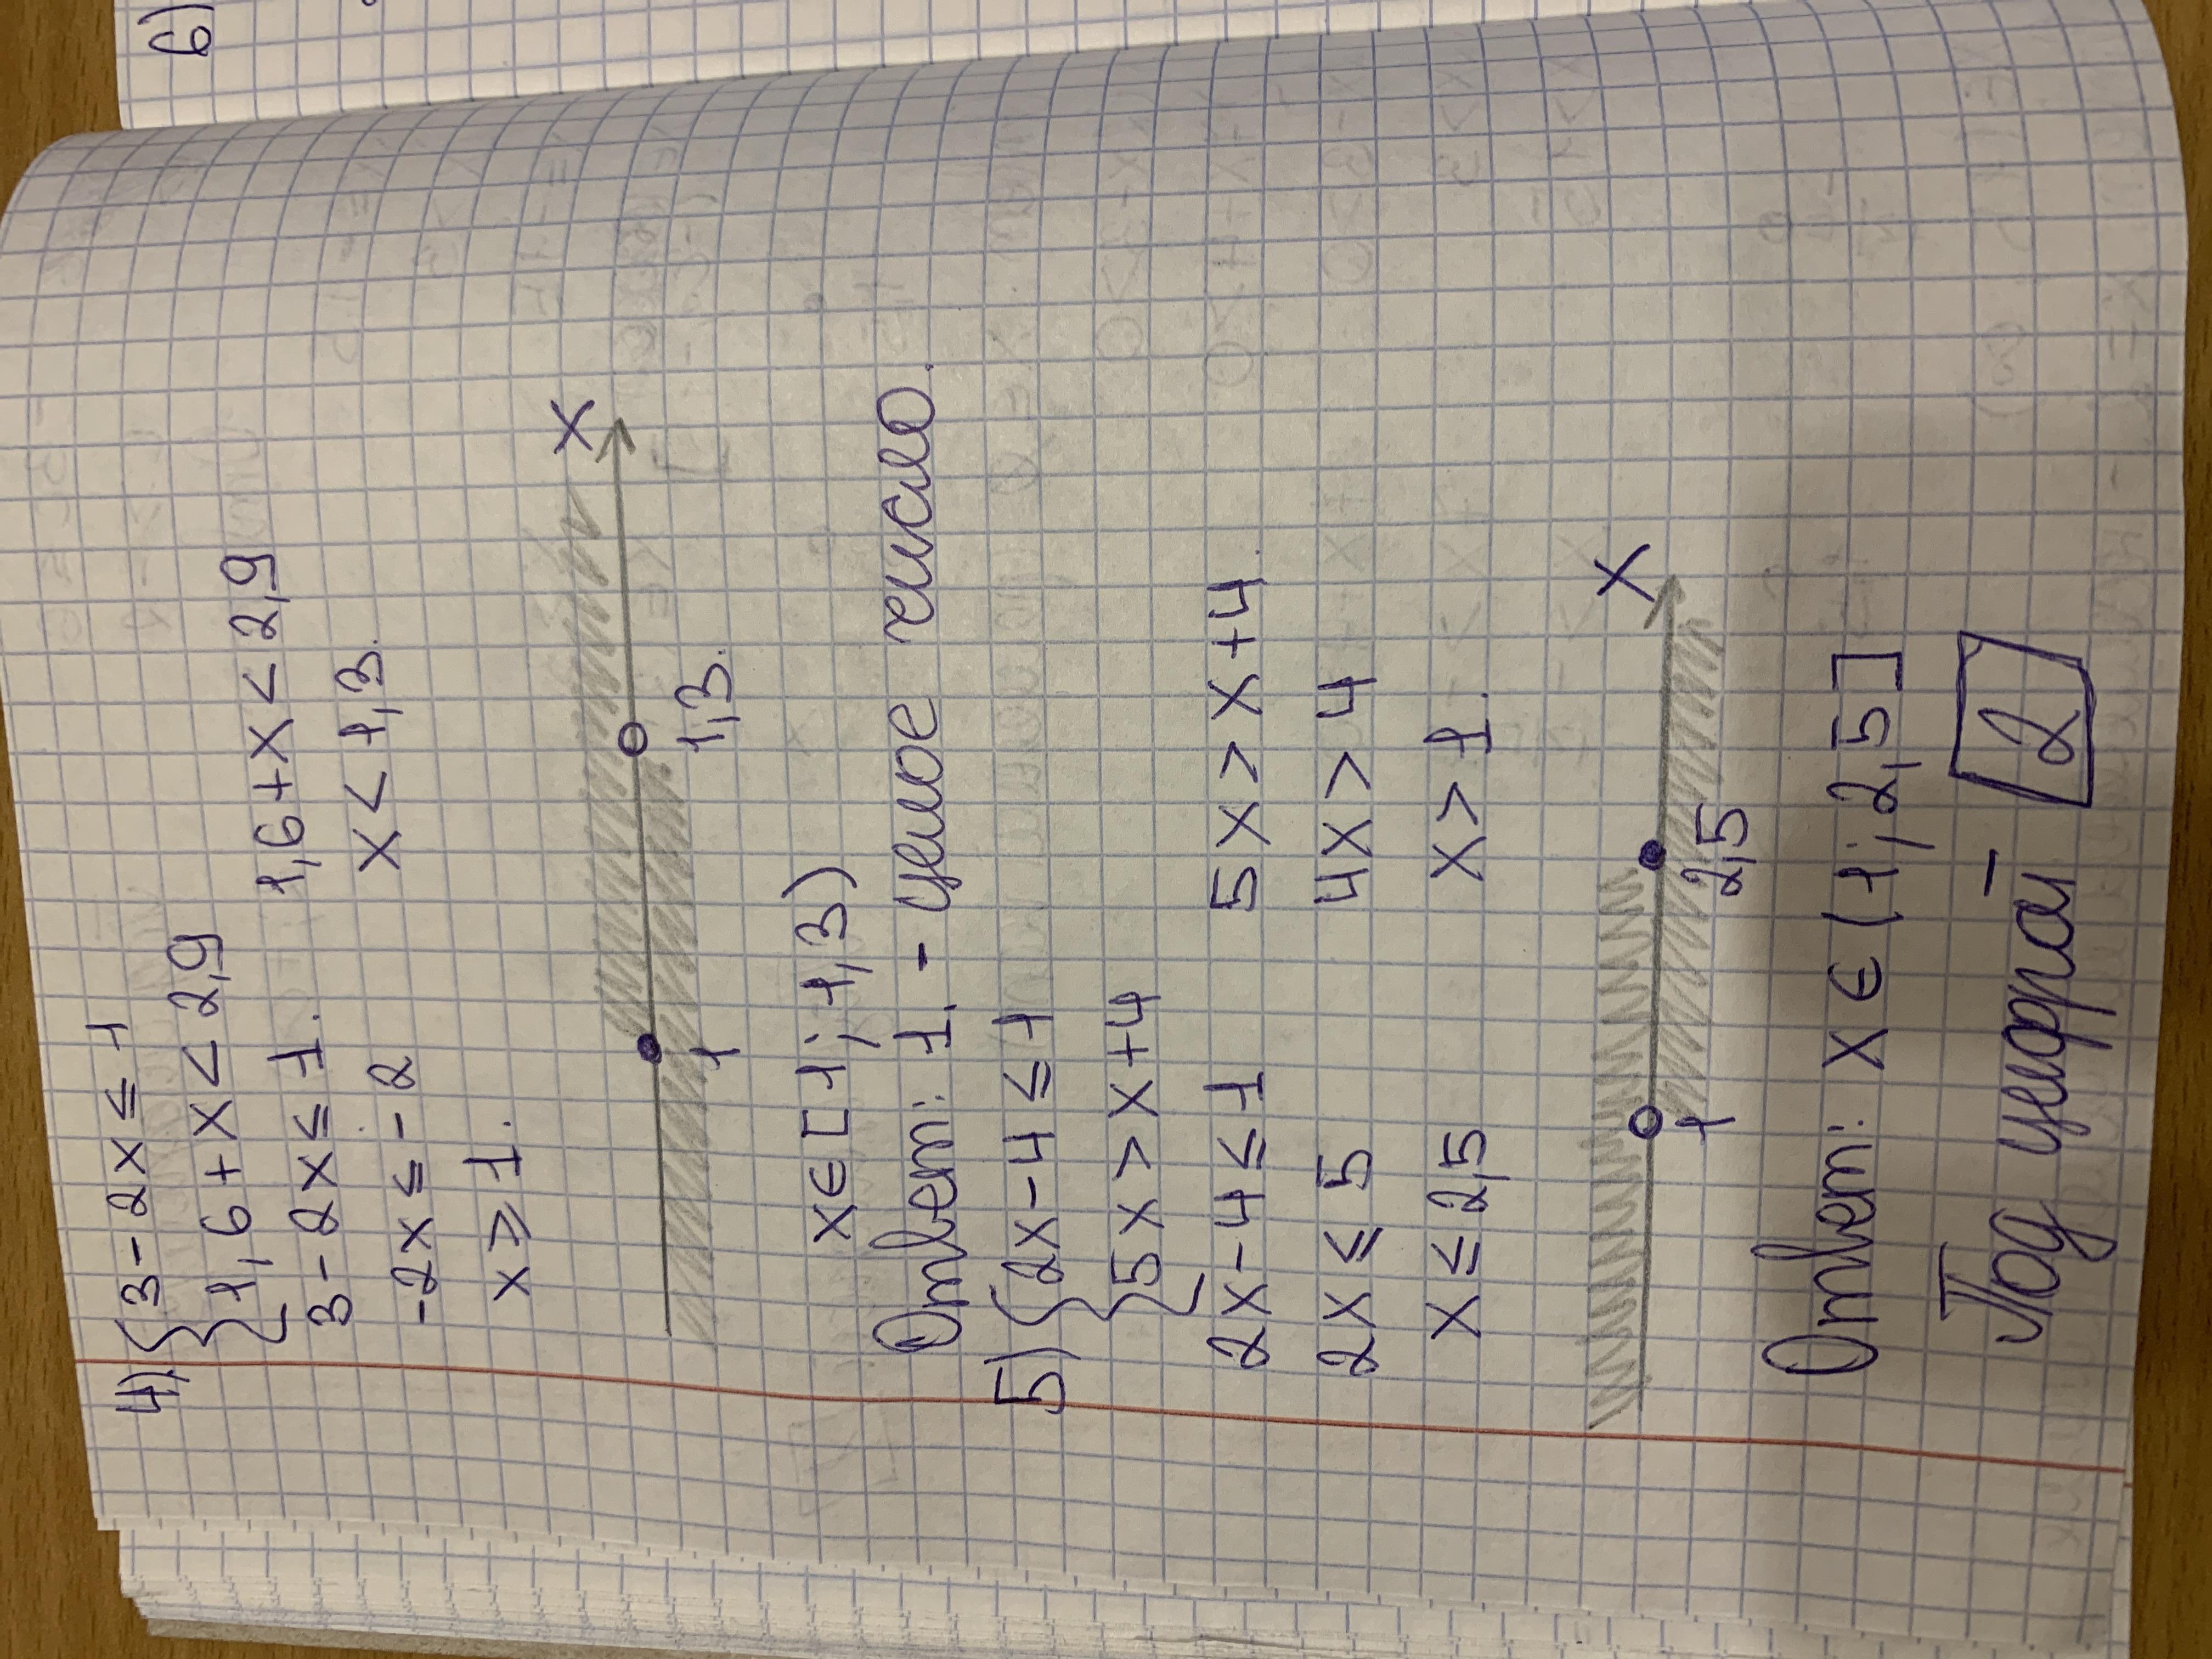 6)
4) { 3-2x ≤ 1
1,6+x < 2,9
3-2x ≤ 1. 1,6+x < 2,9
-2x ≤ -2 x < 1,3.
x ⩾ 1.
x
1 1,3.
x ∈ [1; 1,3)
Ответ: 1. - целое число.
5) { 2x-4 ≤ 1
5x > x+4
2x-4 ≤ 1 5x > x+4.
2x ≤ 5 4x > 4
x ≤ 2,5 x > 1.
x
1 2,5
Ответ: x ∈ (1; 2,5]
Под цифрой - 2